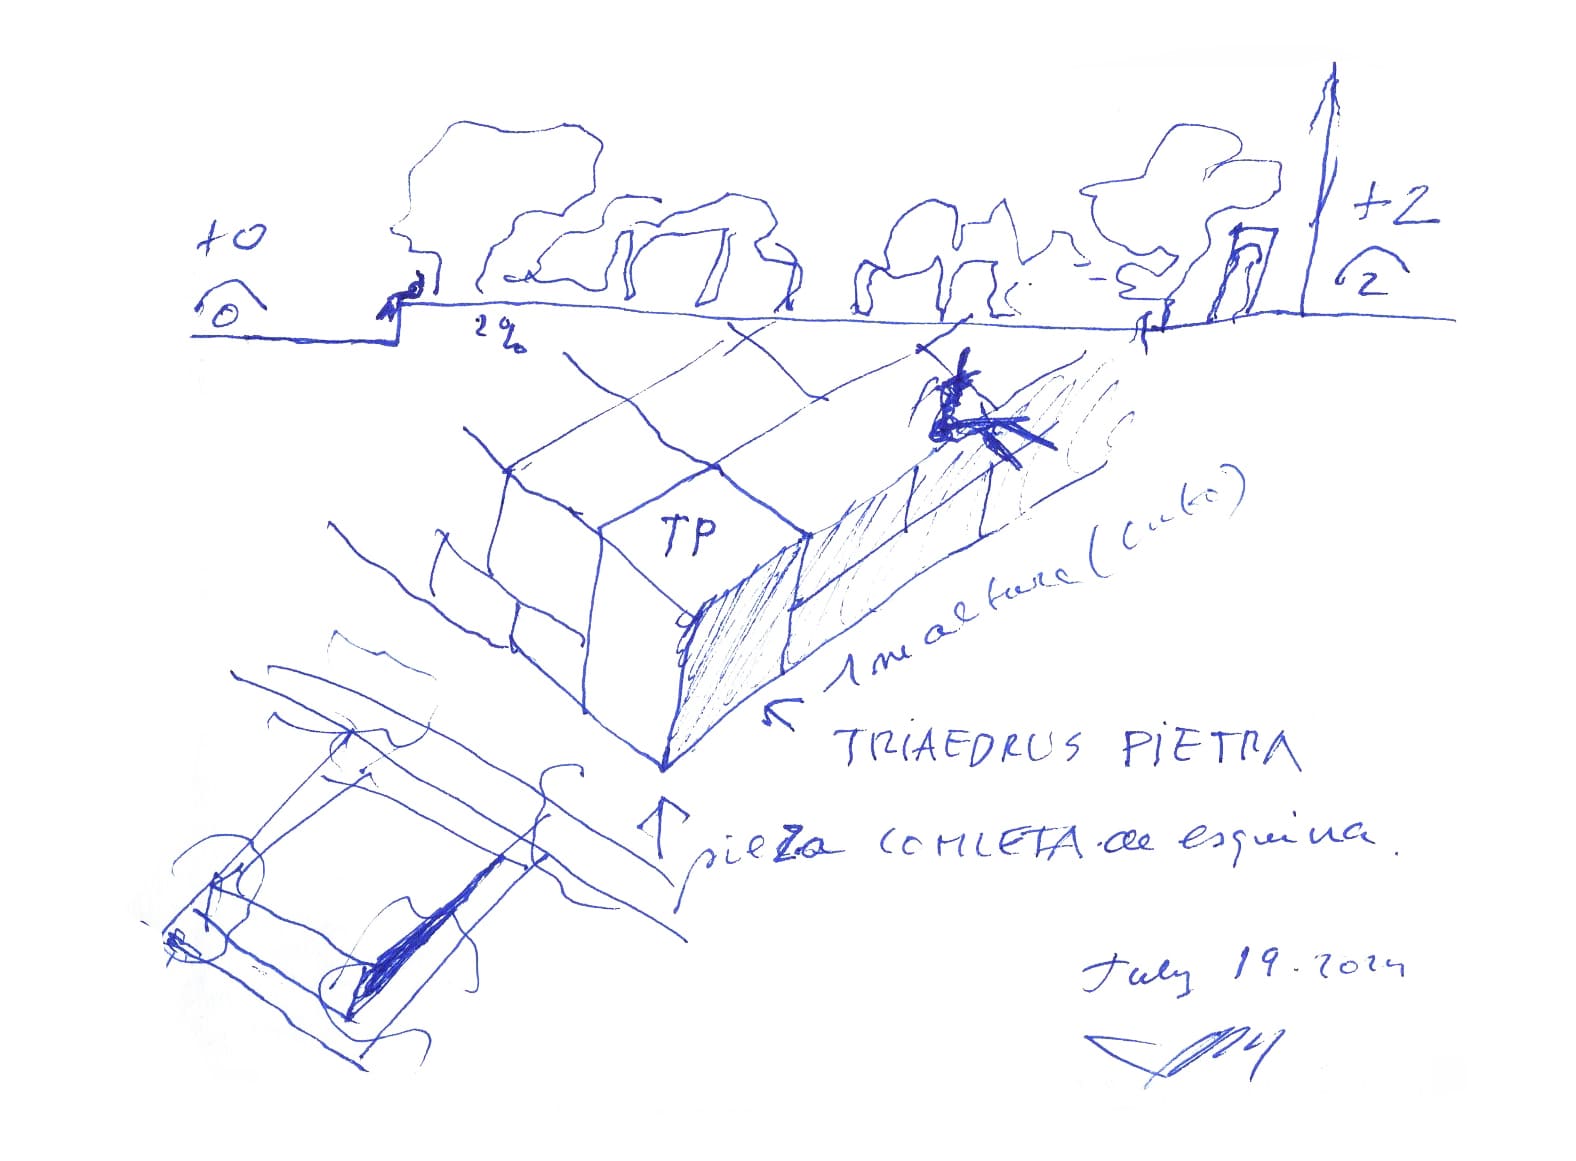 +0
0
2%
+2
2
TP
1 m altura (cubo)
TRIAEDRUS PIETRA
pieza COMLETA de esquina.
July 19.2024